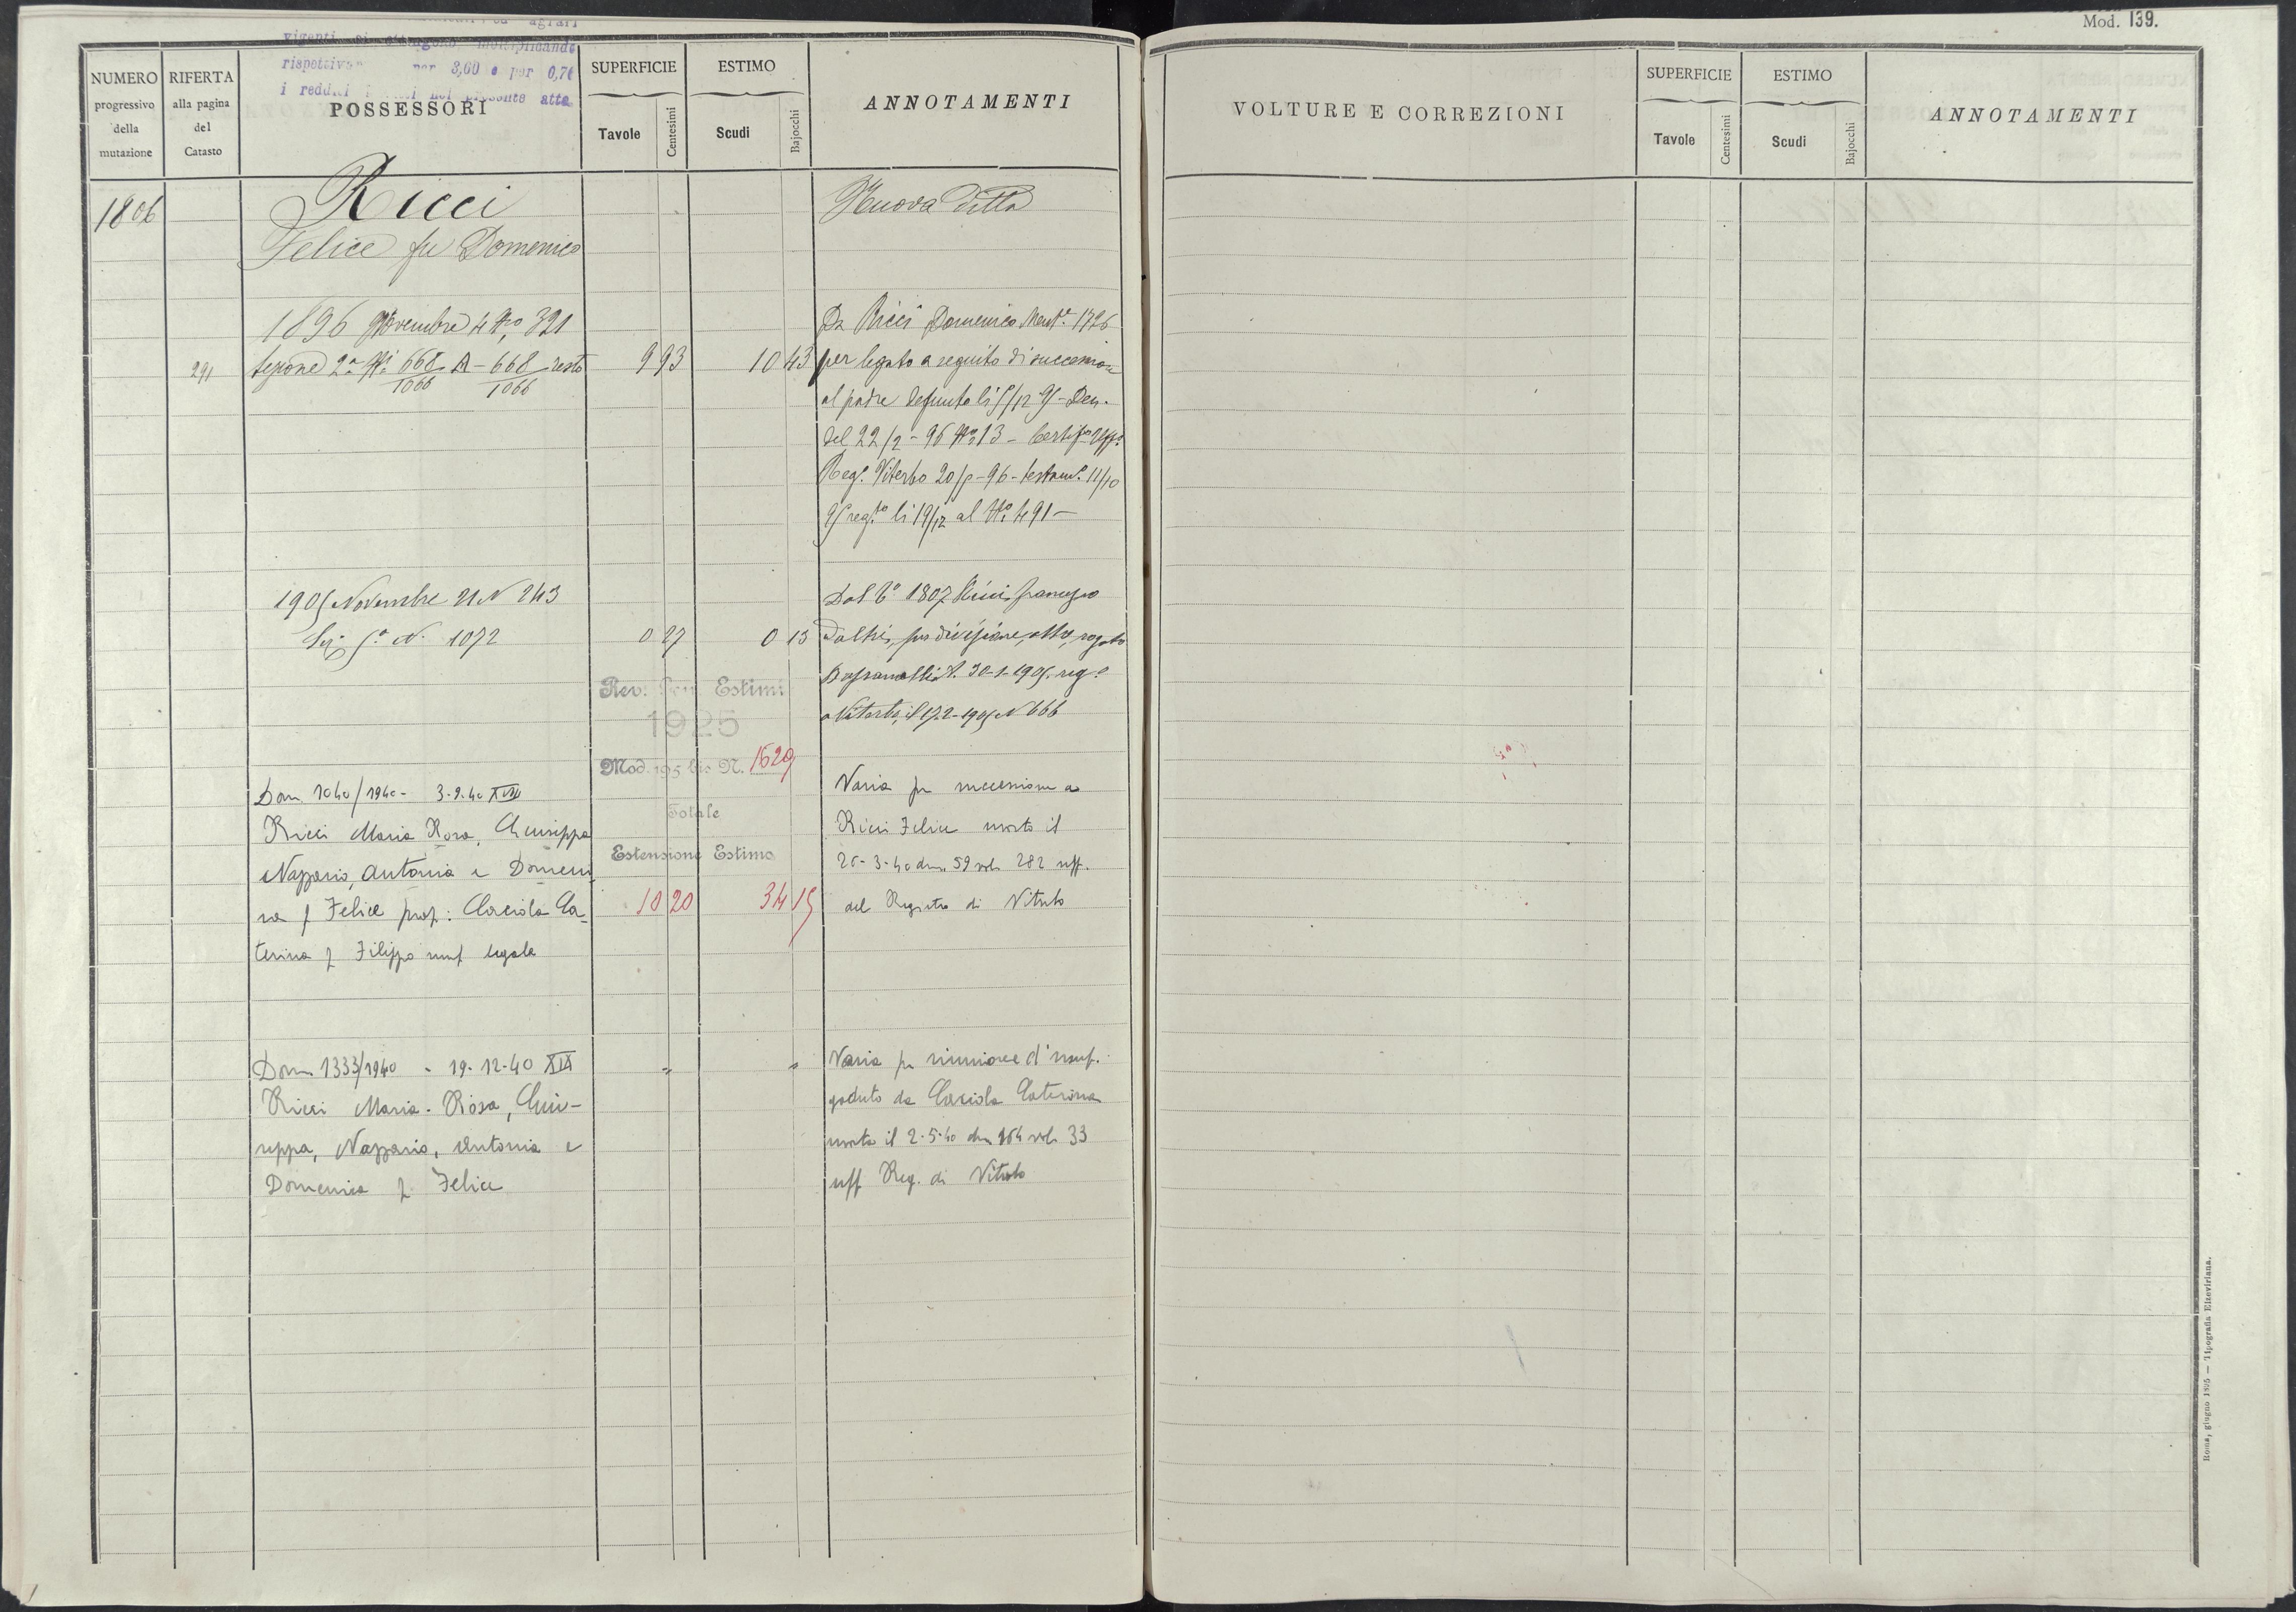 Mod. 139.
agrari
vigenti si ottengono moltiplicando
per 3,60 e per 0,76
i presente atto
NUMERO progressivo della mutazione
RIFERTA alla pagina del Catasto
POSSESSORI
SUPERFICIE
Tavole
Centesimi
ESTIMO
Scudi
Bajocchi
ANNOTAMENTI
1806
Ricci
Nuova Ditta
Felice fu Domenico
1896 Novembre 4 No. 321
Da Ricci Domenico 1726
291
Sezione 2a Ni 668/1066 A - 668/1066 resto
9 93
10 43
per legato a seguito di successione
al padre defunto li
del 22/2 - 96 No. 13 -
Reg. Viterbo 20/ - 96 - testam. 11/10
li 19/12 al No. 491 -
1905 Novembre 21 N 243
Dal 1807 Ricci
N. 1072
0 27
0 13
ed altri, per divisione, atto, rogato
30-1-1905. reg.
a Viterbo, il 1905 N 666
Rev. Estimi
1925
Mod. 195 bis N. 1529
Totale
Estensione Estimo
10 20
34 15
Dom. 1040/1940 - 3-9-40 XVIII
Varia per successione a
Ricci Maria Rosa, Giuseppa
Ricci Felice morto il
Nazzario, Antonia e Domeni
3-40 den. 59 vol. 282 uff.
ca f Felice prop: Caciola Ca-
del Registro di Viterbo
terina f Filippo usuf legale
Dom 1333/1940 - 19-12-40 XIX
" "
Varia per riunione d'usuf.
Ricci Maria-Rosa, Giu-
goduto da Caciola Caterina
seppa, Nazzario, Antonia e
morta il 2-5-40 den 164 vol. 33
Domenica f Felice
uff Reg. di Viterbo
VOLTURE E CORREZIONI
SUPERFICIE
Tavole
Centesimi
ESTIMO
Scudi
Bajocchi
ANNOTAMENTI
Roma, giugno 1895 — Tipografia Elzeviriana.